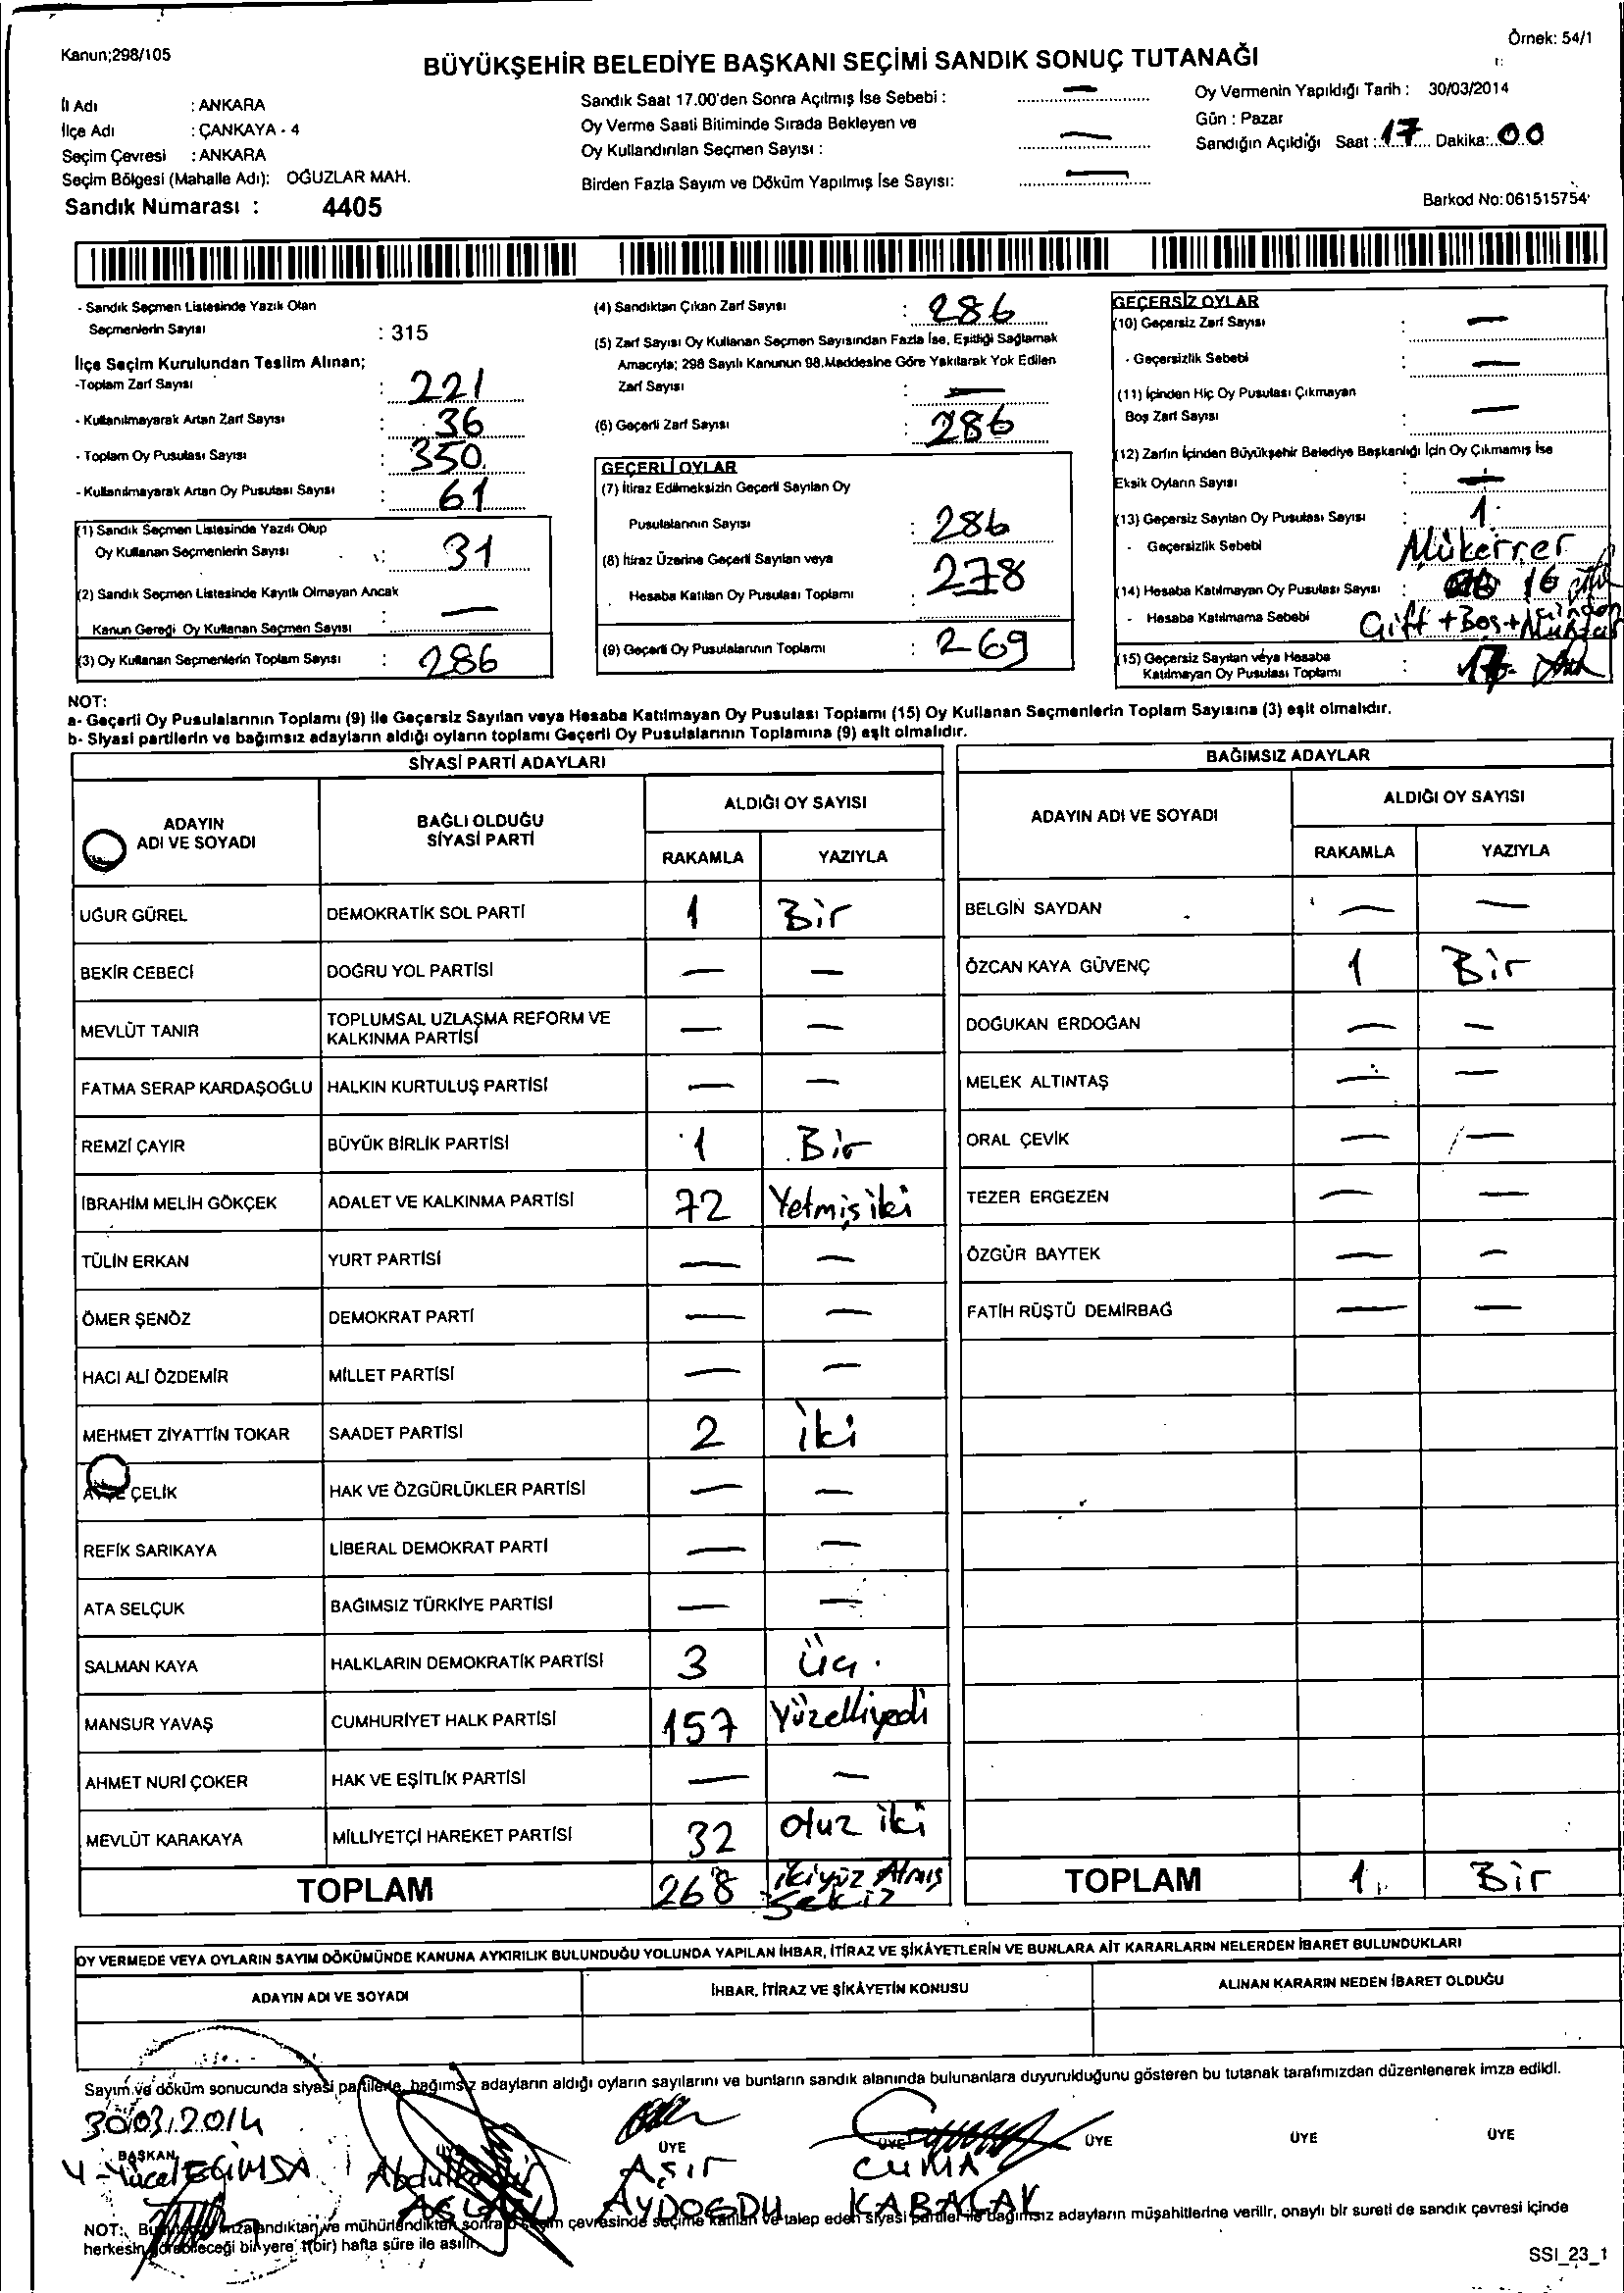 Kanun;298/105
Örnek: 54/1
BÜYÜKŞEHİR BELEDİYE BAŞKANI SEÇİMİ SANDIK SONUÇ TUTANAĞI
İl Adı : ANKARA
İlçe Adı : ÇANKAYA - 4
Seçim Çevresi : ANKARA
Seçim Bölgesi (Mahalle Adı): OĞUZLAR MAH.
Sandık Numarası : 4405
Sandık Saat 17.00'den Sonra Açılmış İse Sebebi : —
Oy Verme Saati Bitiminde Sırada Bekleyen ve
Oy Kullandırılan Seçmen Sayısı : —
Birden Fazla Sayım ve Döküm Yapılmış İse Sayısı: —
Oy Vermenin Yapıldığı Tarih : 30/03/2014
Gün : Pazar
Sandığın Açıldığı Saat : 17 Dakika: 00
Barkod No: 061515754
- Sandık Seçmen Listesinde Yazılı Olan
Seçmenlerin Sayısı : 315
İlçe Seçim Kurulundan Teslim Alınan;
-Toplam Zarf Sayısı : 221
- Kullanılmayarak Artan Zarf Sayısı : 36
- Toplam Oy Pusulası Sayısı : 350
- Kullanılmayarak Artan Oy Pusulası Sayısı : 61
(1) Sandık Seçmen Listesinde Yazılı Olup
Oy Kullanan Seçmenlerin Sayısı : 31
(2) Sandık Seçmen Listesinde Kayıtlı Olmayan Ancak
Kanun Gereği Oy Kullanan Seçmen Sayısı : —
(3) Oy Kullanan Seçmenlerin Toplam Sayısı : 286
(4) Sandıktan Çıkan Zarf Sayısı : 286
(5) Zarf Sayısı Oy Kullanan Seçmen Sayısından Fazla İse, Eşitliği Sağlamak
Amacıyla; 298 Sayılı Kanunun 98.Maddesine Göre Yakılarak Yok Edilen
Zarf Sayısı : —
(6) Geçerli Zarf Sayısı : 286
GEÇERLİ OYLAR
(7) İtiraz Edilmeksizin Geçerli Sayılan Oy
Pusulalarının Sayısı : 286
(8) İtiraz Üzerine Geçerli Sayılan veya
Hesaba Katılan Oy Pusulası Toplamı : 278
(9) Geçerli Oy Pusulalarının Toplamı : 269
GEÇERSİZ OYLAR
(10) Geçersiz Zarf Sayısı : —
- Geçersizlik Sebebi : —
(11) İçinden Hiç Oy Pusulası Çıkmayan
Boş Zarf Sayısı : —
(12) Zarfın İçinden Büyükşehir Belediye Başkanlığı İçin Oy Çıkmamış İse
Eksik Oyların Sayısı : —
(13) Geçersiz Sayılan Oy Pusulası Sayısı : 1
- Geçersizlik Sebebi Mükerrer
(14) Hesaba Katılmayan Oy Pusulası Sayısı : 16
- Hesaba Katılmama Sebebi Çift + Boş +
(15) Geçersiz Sayılan veya Hesaba
Katılmayan Oy Pusulası Toplamı : 17
NOT:
a- Geçerli Oy Pusulalarının Toplamı (9) ile Geçersiz Sayılan veya Hesaba Katılmayan Oy Pusulası Toplamı (15) Oy Kullanan Seçmenlerin Toplam Sayısına (3) eşit olmalıdır.
b- Siyasi partilerin ve bağımsız adayların aldığı oyların toplamı Geçerli Oy Pusulalarının Toplamına (9) eşit olmalıdır.
SİYASİ PARTİ ADAYLARI
ADAYIN ADI VE SOYADI
BAĞLI OLDUĞU SİYASİ PARTİ
ALDIĞI OY SAYISI
RAKAMLA YAZIYLA
UĞUR GÜREL DEMOKRATİK SOL PARTİ 1 Bir
BEKİR CEBECİ DOĞRU YOL PARTİSİ — —
MEVLÜT TANIR TOPLUMSAL UZLAŞMA REFORM VE KALKINMA PARTİSİ — —
FATMA SERAP KARDAŞOĞLU HALKIN KURTULUŞ PARTİSİ — —
REMZİ ÇAYIR BÜYÜK BİRLİK PARTİSİ 1 Bir
İBRAHİM MELİH GÖKÇEK ADALET VE KALKINMA PARTİSİ 72 Yetmiş iki
TÜLİN ERKAN YURT PARTİSİ — —
ÖMER ŞENÖZ DEMOKRAT PARTİ — —
HACI ALİ ÖZDEMİR MİLLET PARTİSİ — —
MEHMET ZİYATTİN TOKAR SAADET PARTİSİ 2 iki
ÇELİK HAK VE ÖZGÜRLÜKLER PARTİSİ — —
REFİK SARIKAYA LİBERAL DEMOKRAT PARTİ — —
ATA SELÇUK BAĞIMSIZ TÜRKİYE PARTİSİ — —
SALMAN KAYA HALKLARIN DEMOKRATİK PARTİSİ 3 Üç.
MANSUR YAVAŞ CUMHURİYET HALK PARTİSİ 157 Yüzelliyedi
AHMET NURİ ÇOKER HAK VE EŞİTLİK PARTİSİ — —
MEVLÜT KARAKAYA MİLLİYETÇİ HAREKET PARTİSİ 32 otuz iki
TOPLAM 268 ikiyüz Atmış Sekiz
BAĞIMSIZ ADAYLAR
ADAYIN ADI VE SOYADI
ALDIĞI OY SAYISI
RAKAMLA YAZIYLA
BELGİN SAYDAN — —
ÖZCAN KAYA GÜVENÇ 1 Bir
DOĞUKAN ERDOĞAN — —
MELEK ALTINTAŞ — —
ORAL ÇEVİK — —
TEZER ERGEZEN — —
ÖZGÜR BAYTEK — —
FATİH RÜŞTÜ DEMİRBAĞ — —
TOPLAM 1 Bir
OY VERMEDE VEYA OYLARIN SAYIM DÖKÜMÜNDE KANUNA AYKIRILIK BULUNDUĞU YOLUNDA YAPILAN İHBAR, İTİRAZ VE ŞİKÂYETLERİN VE BUNLARA AİT KARARLARIN NELERDEN İBARET BULUNDUKLARI
ADAYIN ADI VE SOYADI
İHBAR, İTİRAZ VE ŞİKÂYETİN KONUSU
ALINAN KARARIN NEDEN İBARET OLDUĞU
Sayım ve döküm sonucunda siyasi partilerle, bağımsız adayların aldığı oyların sayılarını ve bunların sandık alanında bulunanlara duyurulduğunu gösteren bu tutanak tarafımızdan düzenlenerek imza edildi.
30.03.2014
BAŞKAN ÜYE ÜYE ÜYE ÜYE ÜYE ÜYE
Yücel Aşır CUMA
AYDOĞDU KABALAK
NOT: imzalandıktan ve mühürlendikten sonra seçim çevresinde seçime katılan ve talep eden siyasi partiler ile bağımsız adayların müşahitlerine verilir, onaylı bir sureti de sandık çevresi içinde
herkesin görebileceği bir yere 1(bir) hafta süre ile asılır.
SSI_23_1